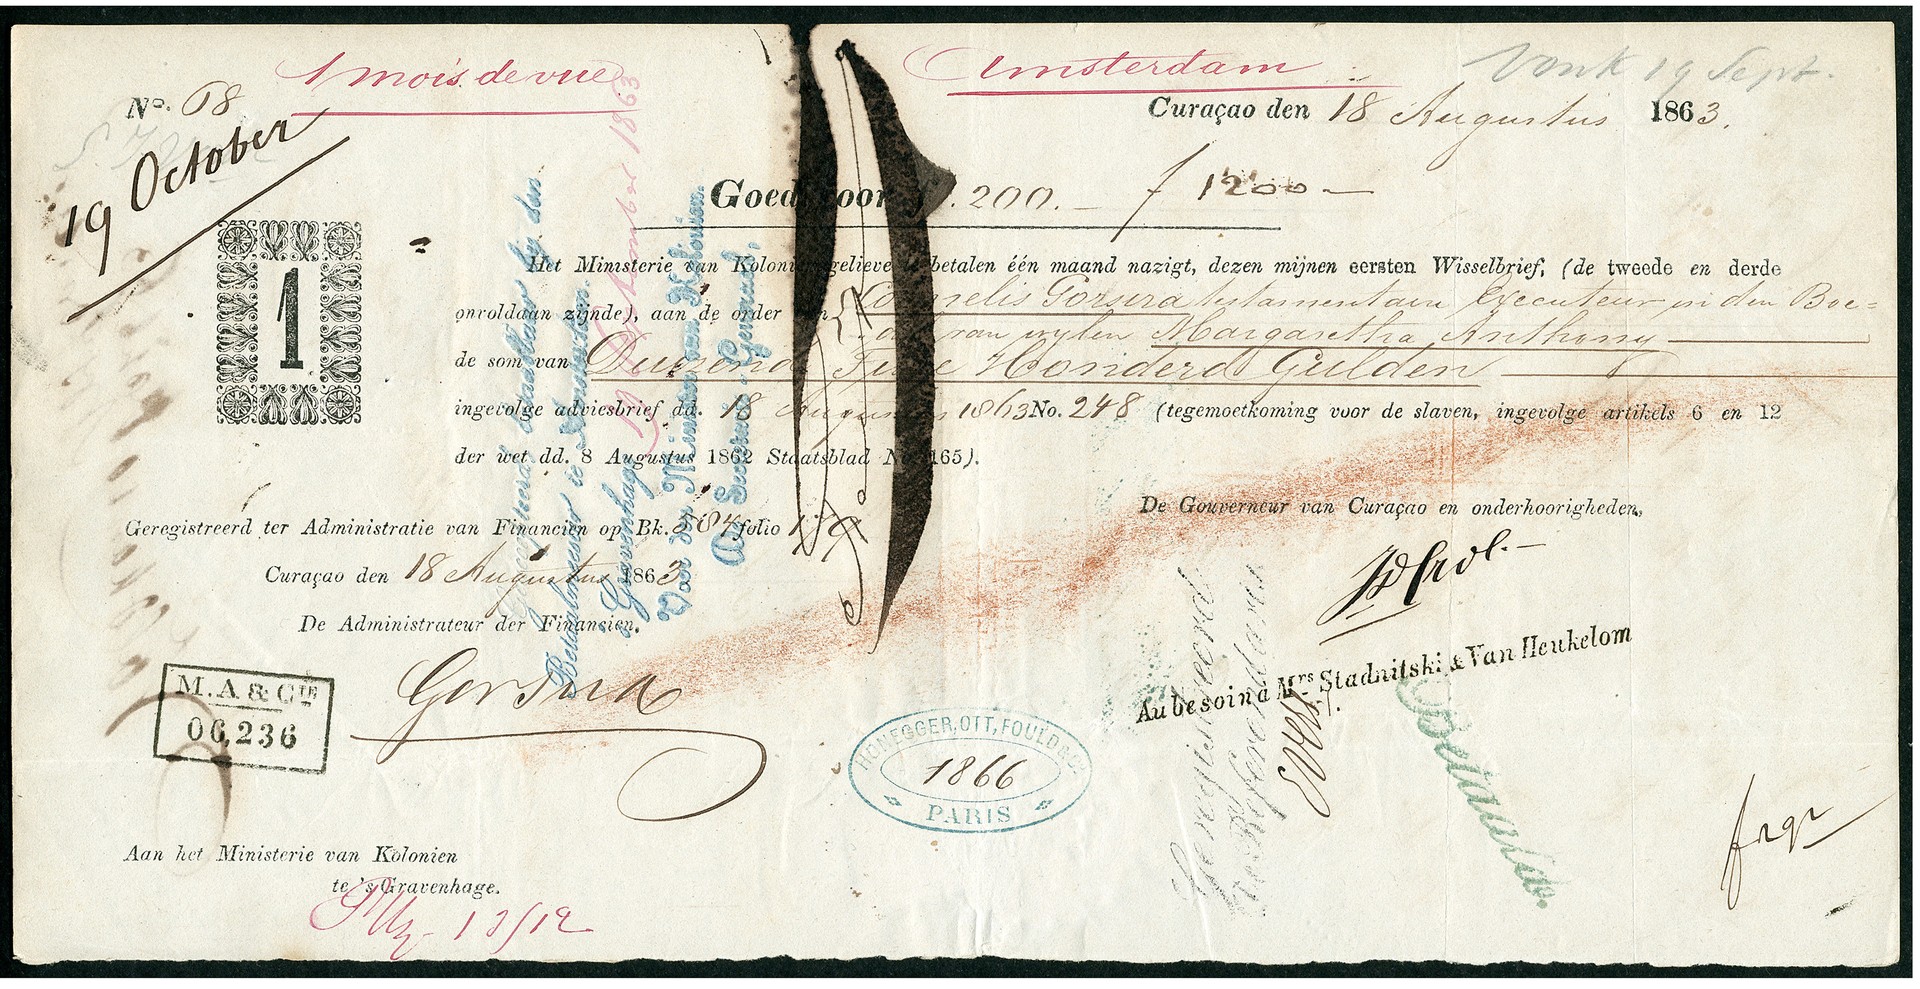 1 mois de vue
Amsterdam
19 Sept.
No. 68
Curaçao den 18 Augustus 1863.
19 October
Goed voor 200.— ƒ 1200—
1
Het Ministerie van Kolonien gelieve te betalen één maand nazigt, dezen mijnen eersten Wisselbrief, (de tweede en derde
onvoldaan zijnde), aan de order van Cornelis Gorsira testamentair Executeur in den Boe=
del van wylen Margaretha Anthony
de som van Duizend Twee Honderd Gulden
ingevolge adviesbrief dd. 18 Augustus 1863 No. 248 (tegemoetkoming voor de slaven, ingevolge artikels 6 en 12
der wet dd. 8 Augustus 1862 Staatsblad No. 165).
De Gouverneur van Curaçao en onderhoorigheden,
Geregistreerd ter Administratie van Financien op Bk. folio
Curaçao den 18 Augustus 1863
De Administrateur der Financien,
Gorsira
Geaccepteerd betaalbaar by den
Betaalmeester te Amsterdam.
's Gravenhage 19 September 1863
Voor den Minister van Kolonien
De Secretaris Generaal,
Au besoin a Mrs Stadnitski & Van Heukelom
M. A & CIE
06,236
HONEGGER, OTT, FOULD & Co
1866
PARIS
Geregistreerd
Betaald.
Aan het Ministerie van Kolonien
te 's Gravenhage.